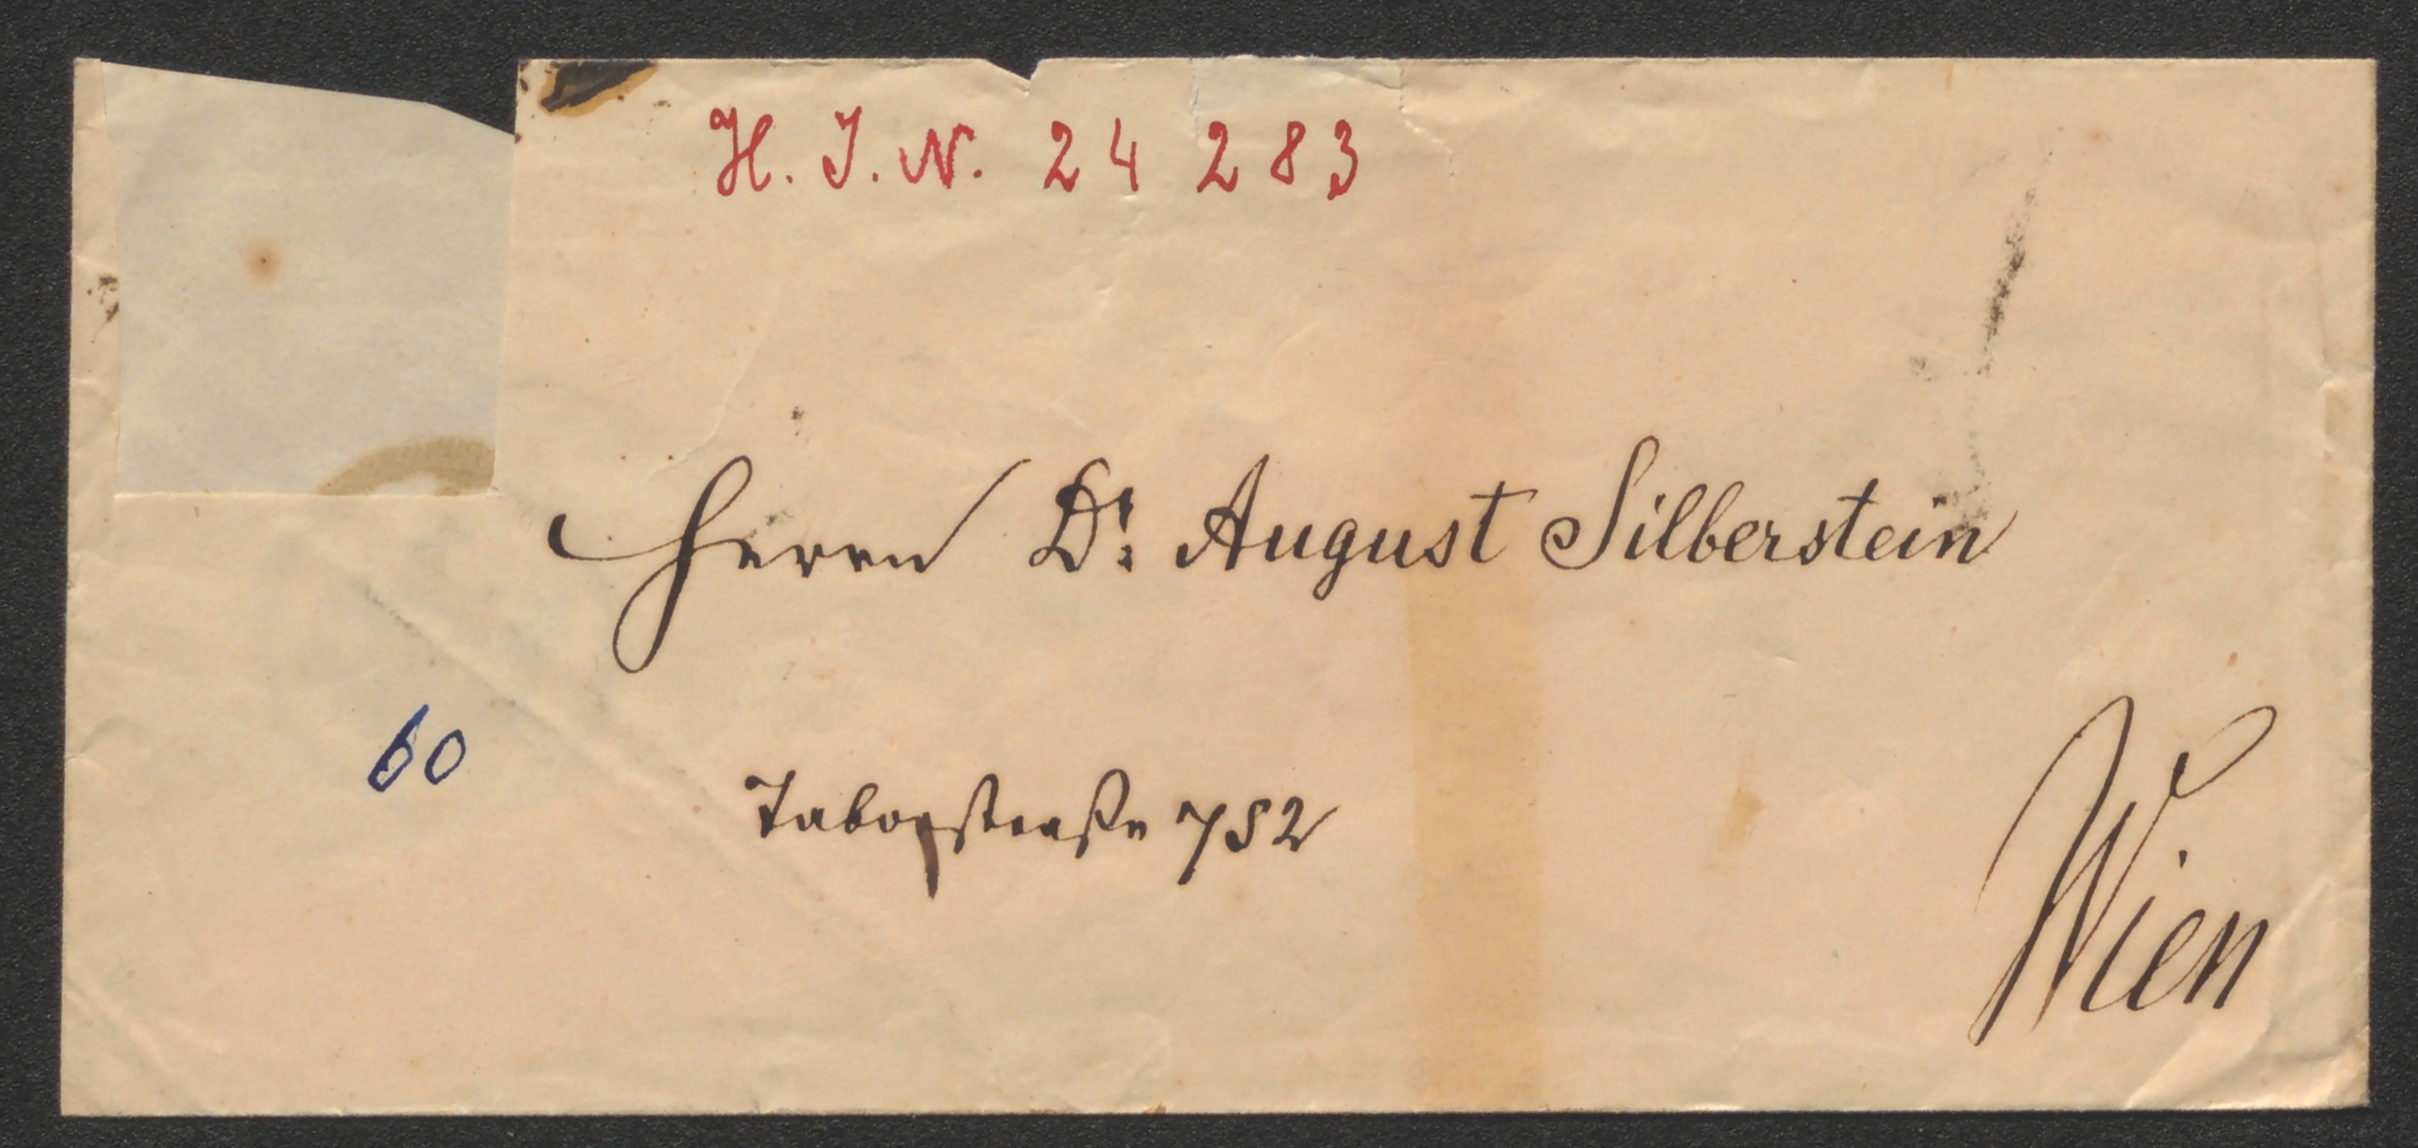 H. J. N. 24 283
Herrn Dr. August Silberstein
60
Taborstraße 752
Wien